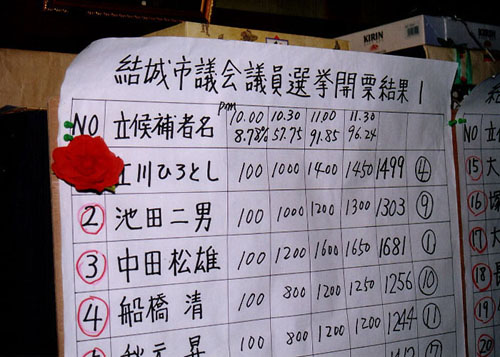 KIRIN
結城市議会議員選挙開票結果 1
NO 立候補者名 pm 10.00 10.30 11.00 11.30
8.78% 57.75 91.85 96.24
江川ひろとし 100 1000 1400 1450 1499 ④
② 池田二男 100 1000 1200 1300 1303 ⑨
③ 中田松雄 100 1200 1600 1650 1681 ①
④ 船橋 清 100 800 1200 1250 1256 ⑩
昇 100 800 1200 1200 1244 ⑪
NO
⑮ 大
⑯ 塚
⑰ 大
⑱
⑲
⑳